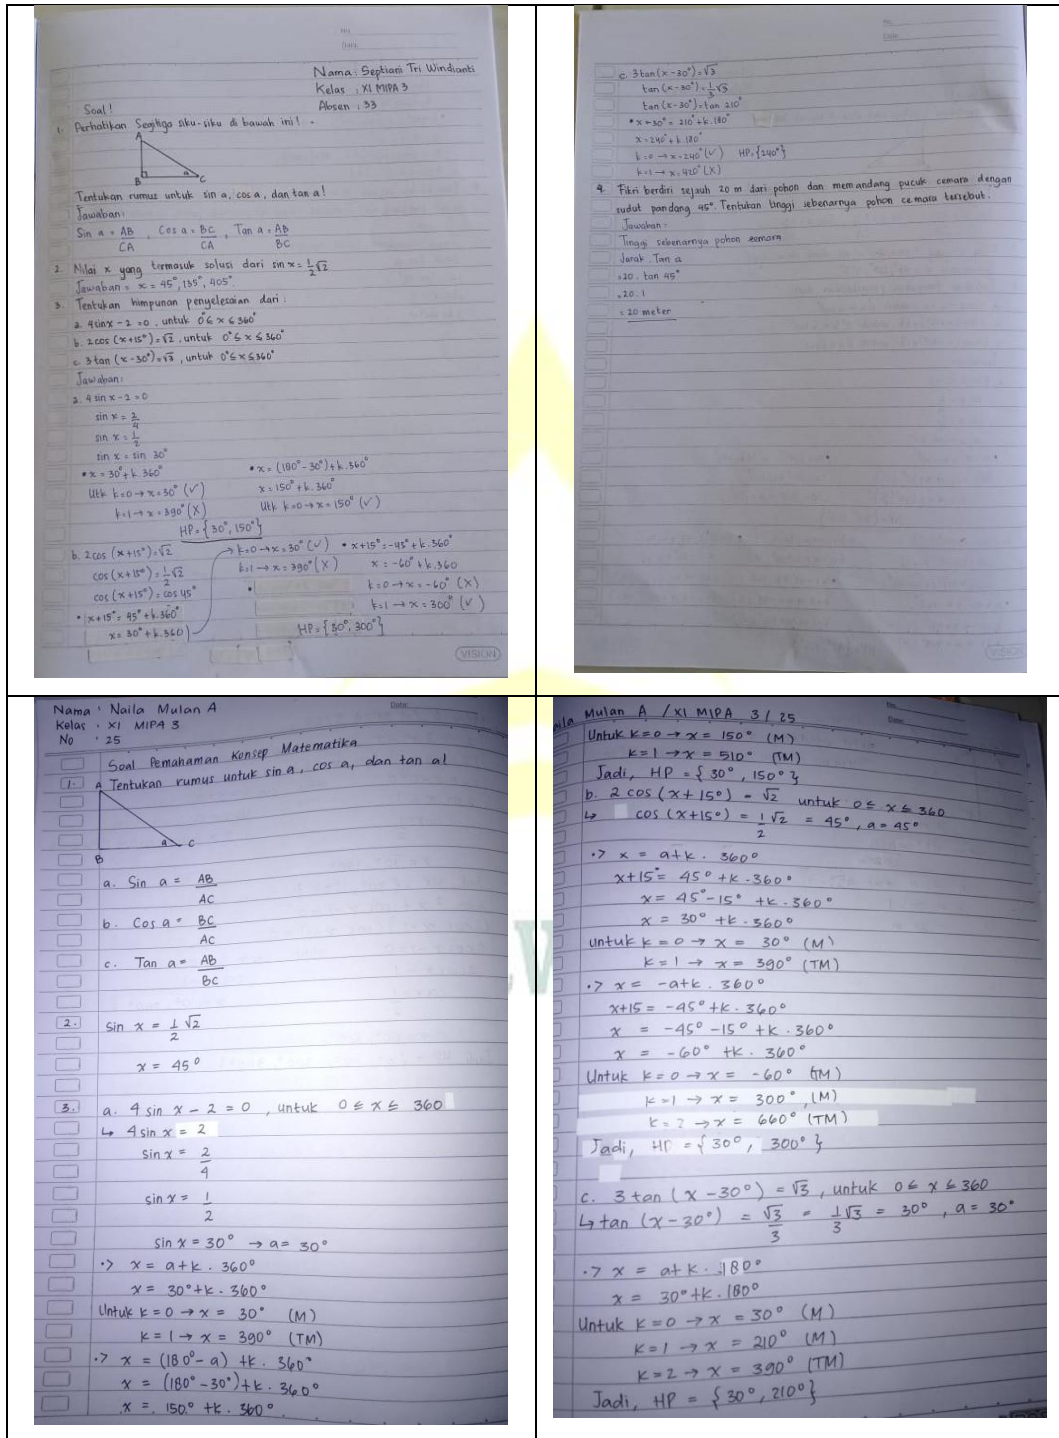 Nama : Septiani Tri Windianti
Kelas : XI MIPA 3
Absen : 33
Soal !
1. Perhatikan Segitiga siku-siku di bawah ini!
A
B a C
Tentukan rumus untuk sin a, cos a, dan tan a!
Jawaban:
Sin a = AB/CA , Cos a = BC/CA , Tan a = AB/BC
2. Nilai x yang termasuk solusi dari sin x = 1/2 √2
Jawaban = x = 45°, 135°, 405°
3. Tentukan himpunan penyelesaian dari:
a. 4 sin x - 2 = 0, untuk 0° ≤ x ≤ 360°
b. 2 cos (x+15°) = √2, untuk 0° ≤ x ≤ 360°
c. 3 tan (x-30°) = √3, untuk 0° ≤ x ≤ 360°
Jawaban:
a. 4 sin x - 2 = 0
sin x = 2/4
sin x = 1/2
sin x = sin 30°
• x = 30° + k.360° • x = (180° - 30°) + k.360°
Utk k=0 → x=30° (√) x = 150° + k.360°
k=1 → x = 390° (X) Utk k=0 → x = 150° (√)
HP = {30°, 150°}
b. 2 cos (x+15°) = √2 → k=0 → x = 30° (√) • x+15° = -45° + k.360°
cos (x+15°) = 1/2 √2 k=1 → x = 390° (X) x = -60° + k.360
cos (x+15°) = cos 45° k=0 → x = -60° (X)
• x+15° = 45° + k.360° k=1 → x = 300° (√)
x = 30° + k.360 HP = {30°, 300°}
VISION
c. 3 tan (x-30°) = √3
tan (x-30°) = 1/3 √3
tan (x-30°) = tan 210°
• x-30° = 210° + k.180°
x = 240° + k.180°
k=0 → x = 240° (√) HP = {240°}
k=1 → x = 420° (X)
4. Fitri berdiri sejauh 20 m dari pohon dan memandang pucuk cemara dengan
sudut pandang 45°. Tentukan tinggi sebenarnya pohon cemara tersebut.
Jawaban:
Tinggi sebenarnya pohon cemara
Jarak . Tan a
= 20 . tan 45°
= 20 . 1
= 20 meter
VISION
Nama : Naila Mulan A
Kelas : XI MIPA 3
No : 25
Soal Pemahaman Konsep Matematika
1. Tentukan rumus untuk sin a, cos a, dan tan a!
A
B a C
a. Sin a = AB/AC
b. Cos a = BC/AC
c. Tan a = AB/BC
2. Sin x = 1/2 √2
x = 45°
3. a. 4 sin x - 2 = 0 , untuk 0 ≤ x ≤ 360
↳ 4 sin x = 2
Sin x = 2/4
Sin x = 1/2
Sin x = 30° → a = 30°
•> x = a+k . 360°
x = 30°+k . 360°
Untuk k = 0 → x = 30° (M)
k = 1 → x = 390° (TM)
•> x = (180° - a) + k . 360°
x = (180° - 30°) + k . 360°
x = 150° + k . 360°
Naila Mulan A / XI MIPA 3 / 25
Untuk k = 0 → x = 150° (M)
k = 1 → x = 510° (TM)
Jadi, HP = {30°, 150°}
b. 2 cos (x + 15°) = √2 untuk 0 ≤ x ≤ 360
↳ cos (x+15°) = 1/2 √2 = 45°, a = 45°
•> x = a+k . 360°
x+15° = 45° + k . 360°
x = 45° - 15° + k . 360°
x = 30° + k . 360°
Untuk k = 0 → x = 30° (M)
k = 1 → x = 390° (TM)
•> x = -a+k . 360°
x+15 = -45° + k . 360°
x = -45° - 15° + k . 360°
x = -60° + k . 360°
Untuk k = 0 → x = -60° (TM)
k = 1 → x = 300° (M)
k = 2 → x = 660° (TM)
Jadi, HP = {30°, 300°}
c. 3 tan (x - 30°) = √3, untuk 0 ≤ x ≤ 360
↳ tan (x - 30°) = √3/3 = 1/3 √3 = 30°, a = 30°
•> x = a+k . 180°
x = 30° + k . 180°
Untuk k = 0 → x = 30° (M)
k = 1 → x = 210° (M)
k = 2 → x = 390° (TM)
Jadi, HP = {30°, 210°}